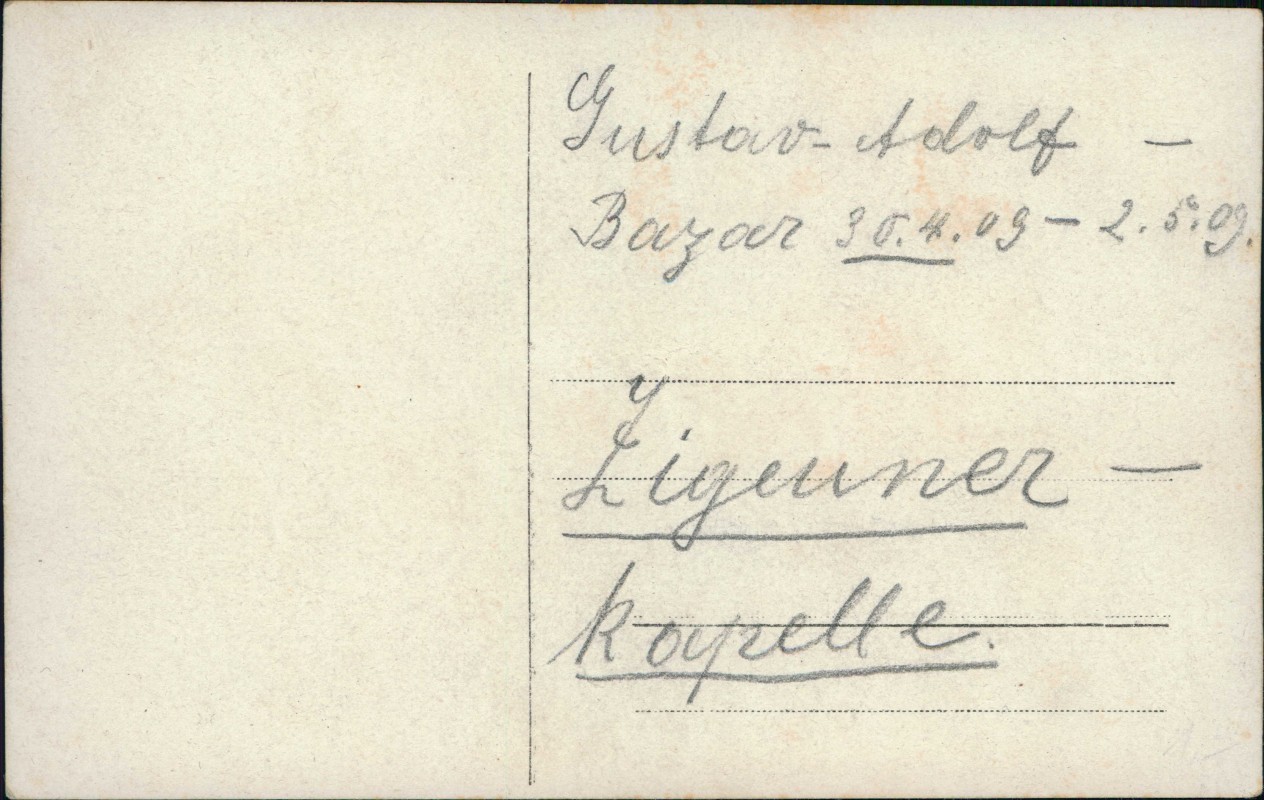 Gustav-Adolf –
Bazar 30.4.09 – 2.5.09.
Zigeuner –
kapelle.